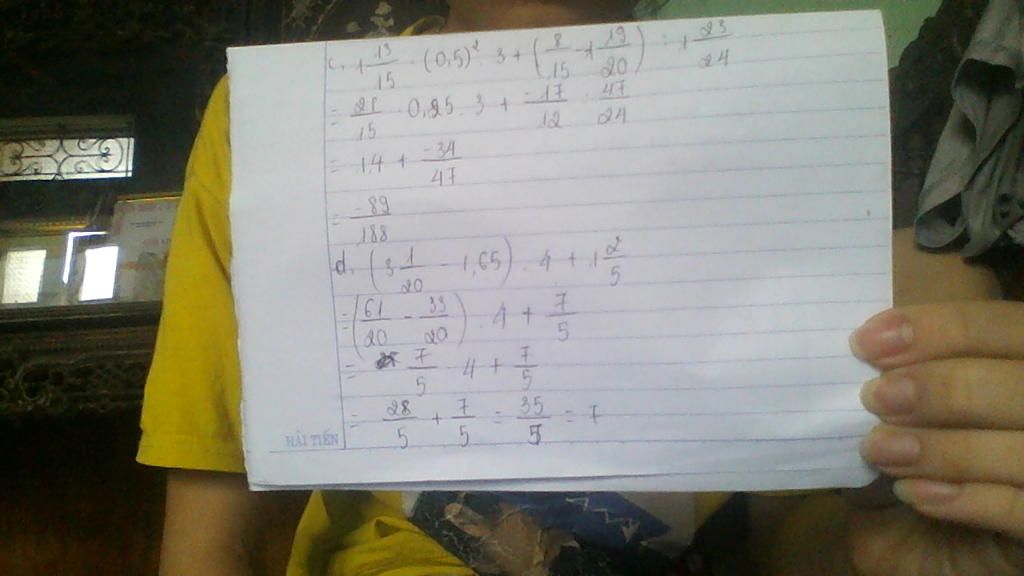 c, 1 13/15 . (0,5)² . 3 + (8/15 - 1 19/20) : 1 23/24
= 28/15 . 0,25 . 3 + -17/12 : 47/24
= 1,4 + -34/47
= -89/188
d, (3 1/20 - 1,65) . 4 + 1 2/5
= (61/20 - 33/20) . 4 + 7/5
= 7/5 . 4 + 7/5
= 28/5 + 7/5 = 35/5 = 7
HẢI TIẾN